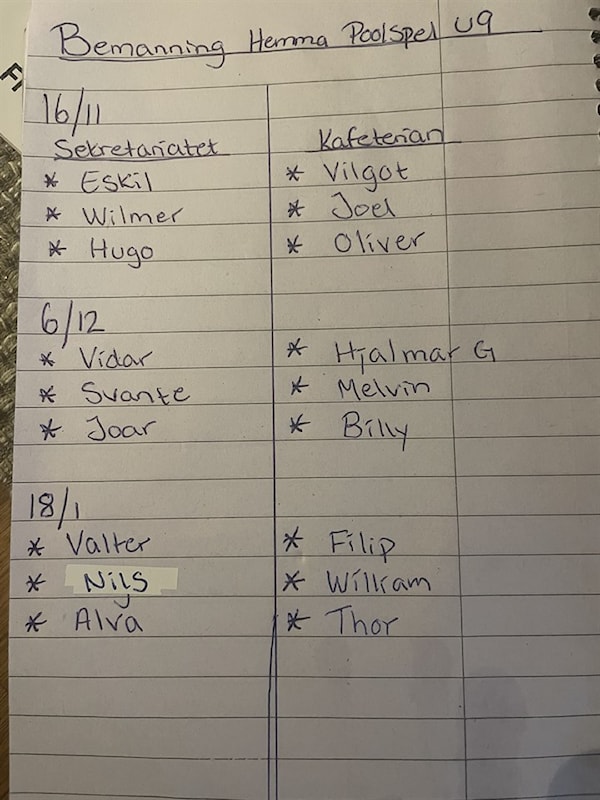 Bemanning Hemma Poolspel U9
16/11
Sekretariatet
* Eskil
* Wilmer
* Hugo
Kafeterian
* Vilgot
* Joel
* Oliver
6/12
* Vidar
* Svante
* Joar
* Hjalmar G
* Melvin
* Billy
18/1
* Valter
* Nils
* Alva
* Filip
* William
* Thor